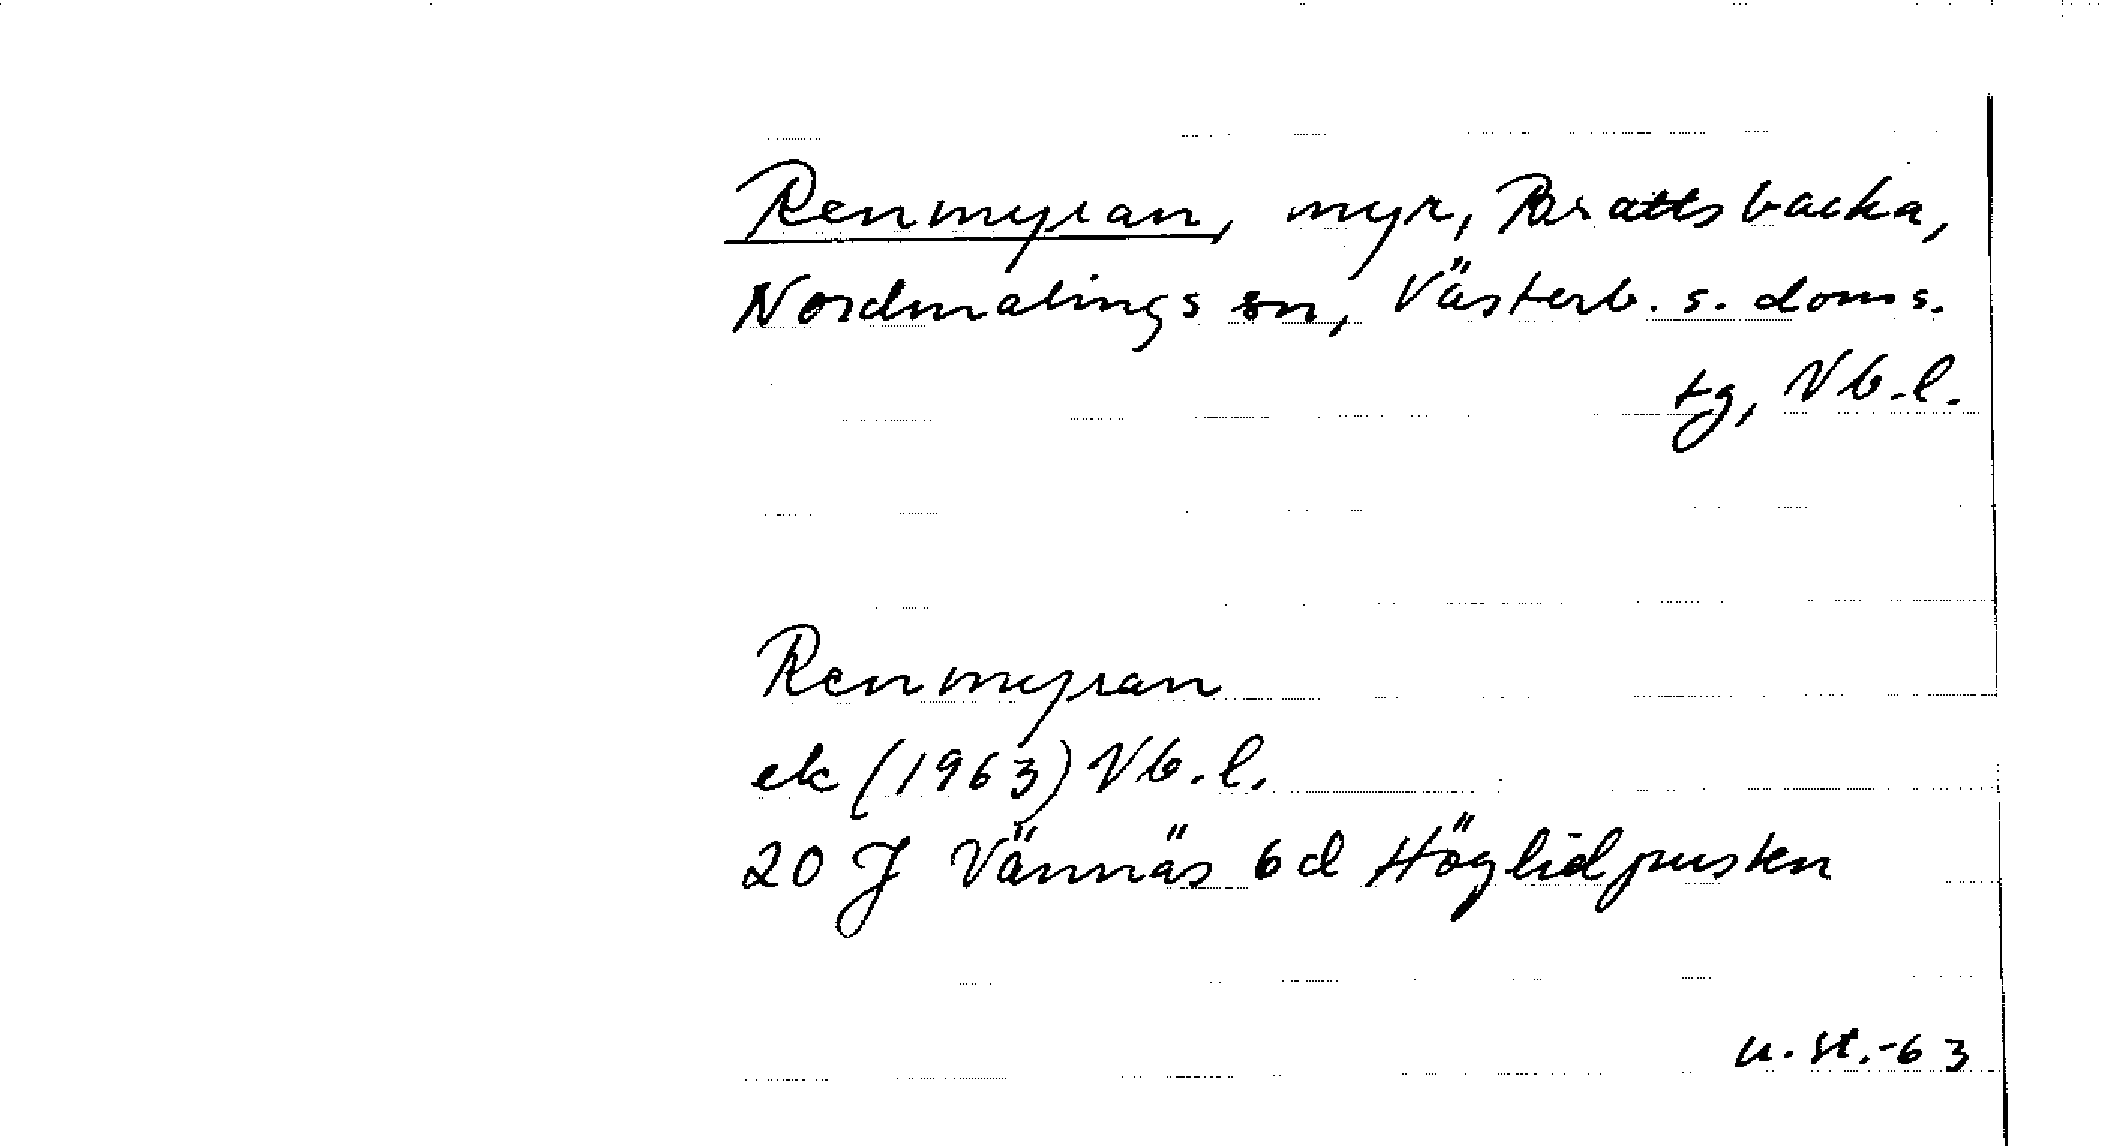 Renmyran, myr, Brattsbacka,
Nordmalings sn, Västerb. s. doms.
tg, Vb.l.
Renmyran
ek (1963) Vb.l.
20 J Vännäs 6d Höglidjusten
u.st.-63